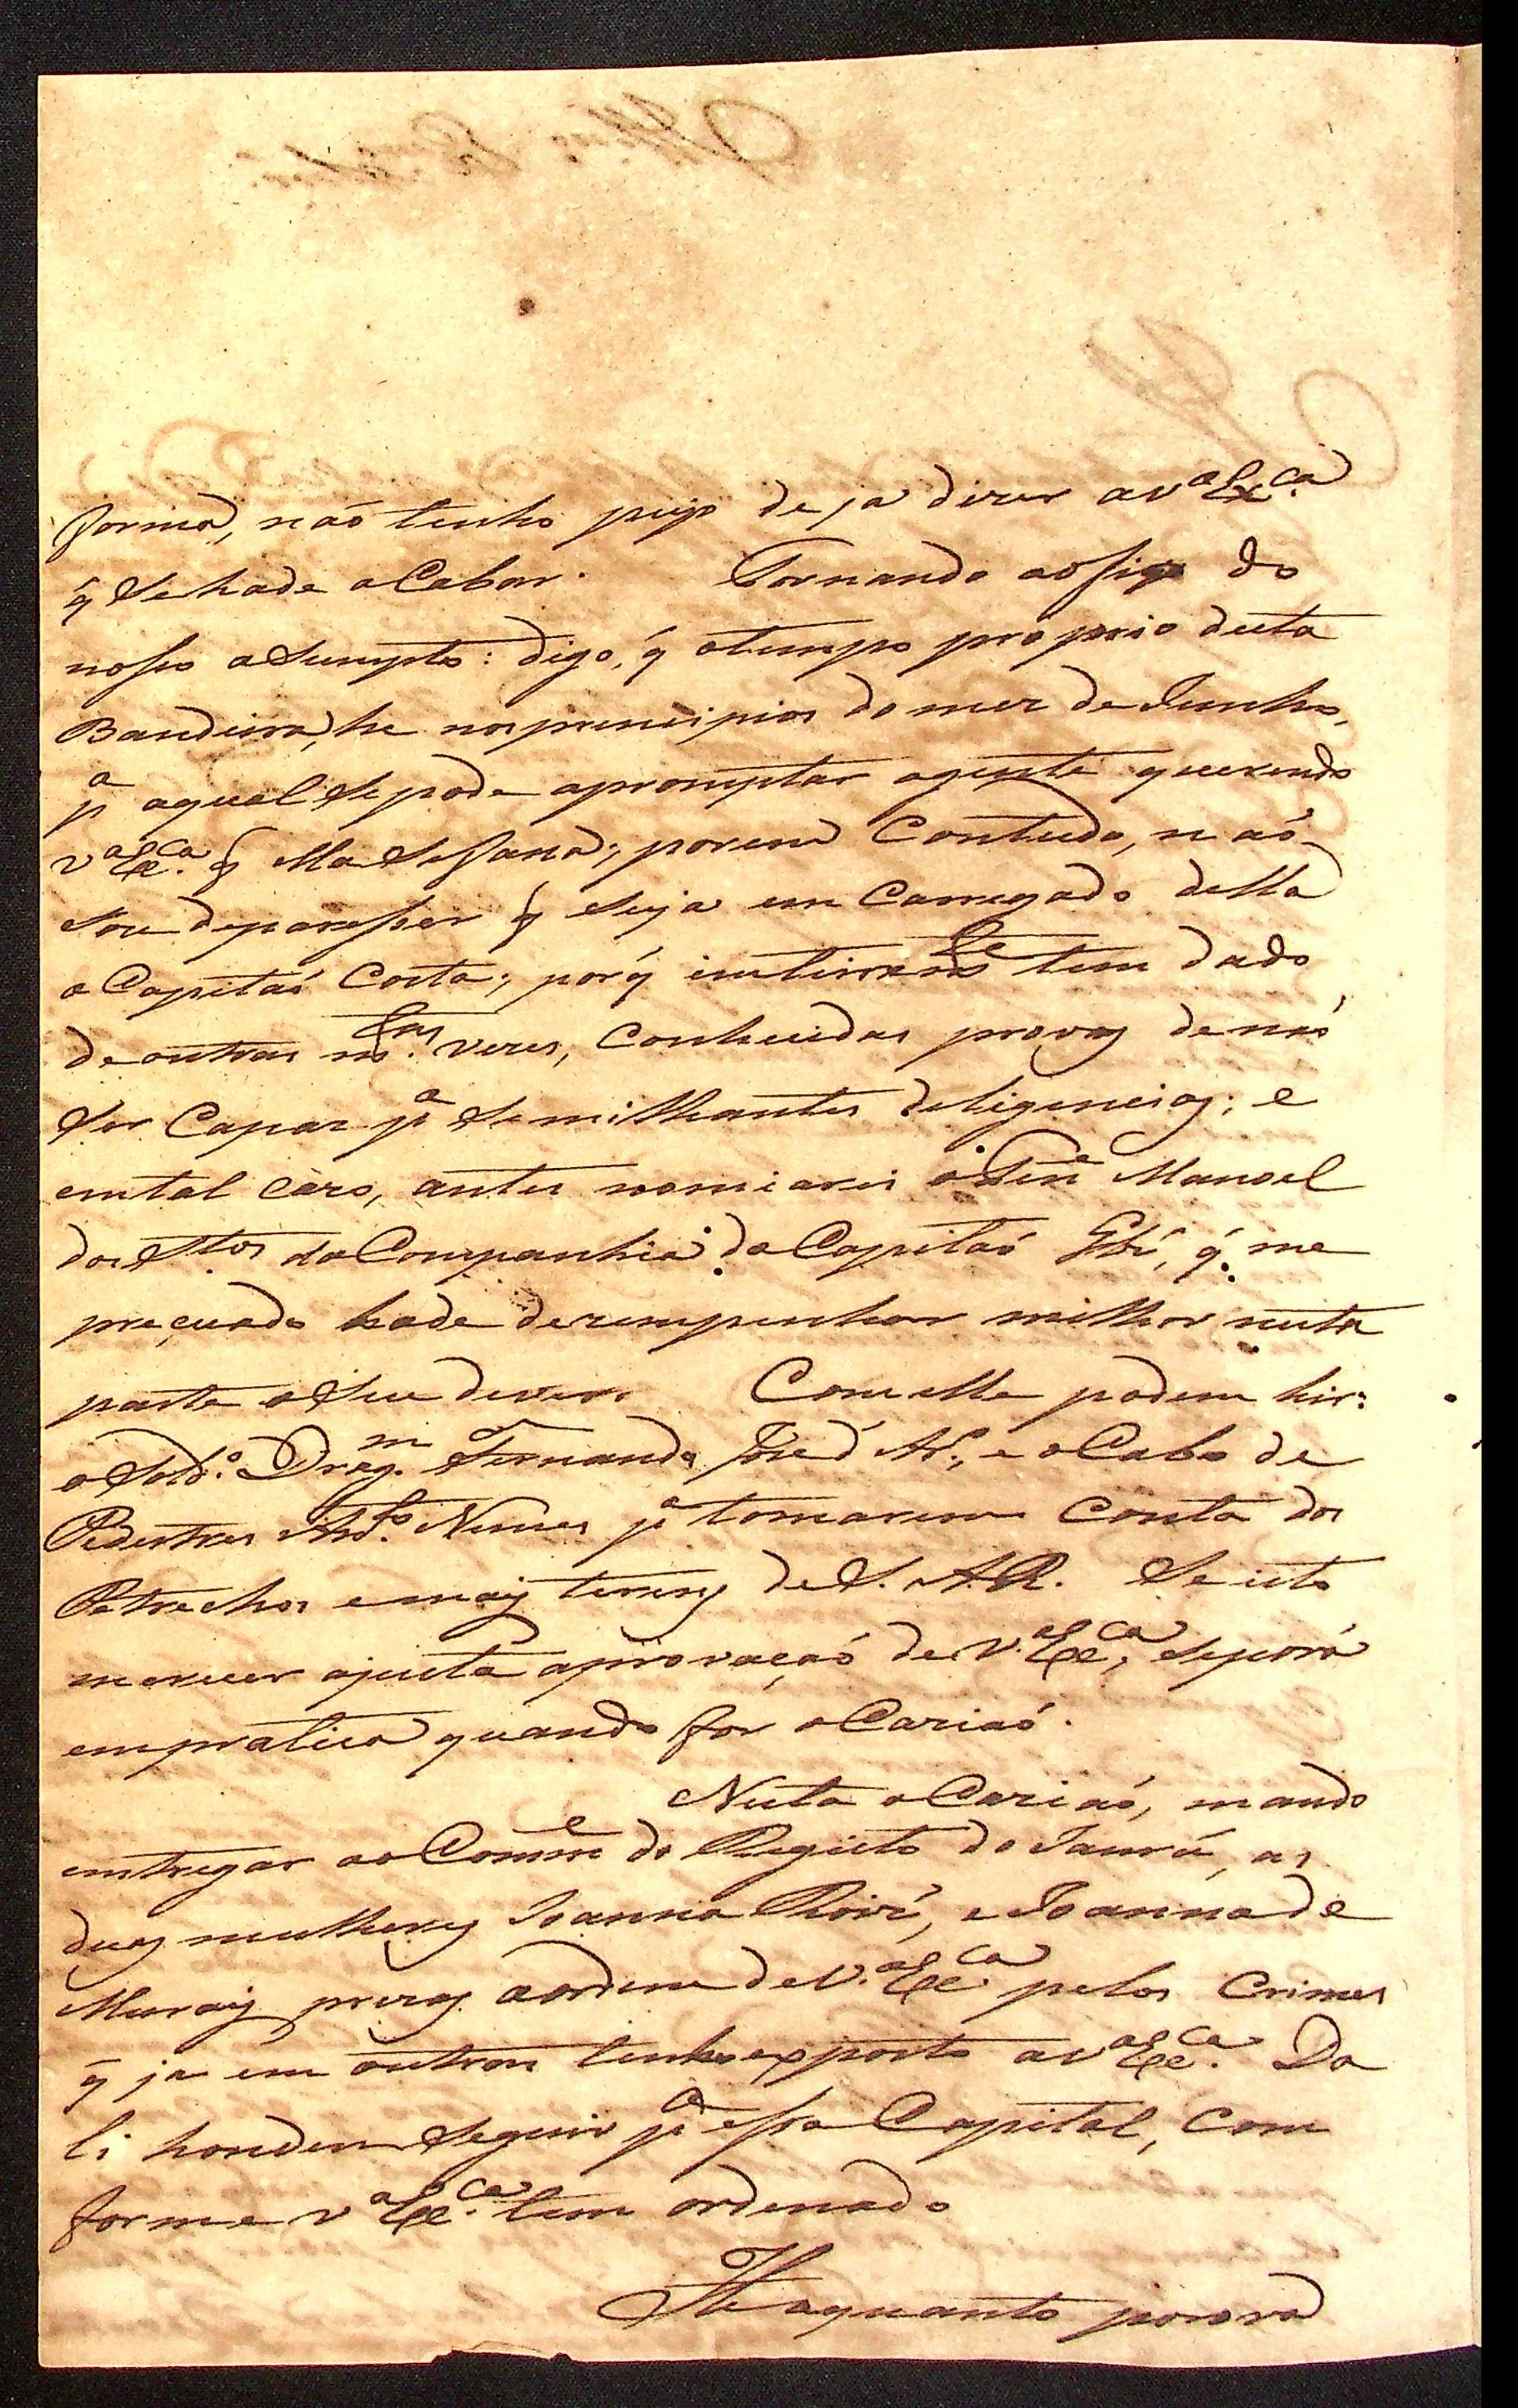 forma, não tenho pejo de ja dizer a v.ª Ex.ca
q̃ se hade aCabar. Tornando ao fio do
nosso asumpto: digo, q̃ otempo proprio desta
Bandeira, he nos prencipios do mez de Junho,
p.ª aqual se pode apromptar agente querendo
v.ª Ex.ca q̃ ella se fassa; porem Contudo, não
sou deparesser q̃ seja em Carregado della
o Capitaõ Costa; porq̃ inteiram.te tem dado
de outras m.tas vezes, Conhecidas provas de naõ
ser Capaz p.ª semilhantes deligencias; e
emtal cazo, antes nomiarei o Ten.e Manoel
dos S.tos da Companhia do Capitaõ q̃ me
preçuado hade dezempenhar milhor nesta
parte oseu dever. Com elle podem hir:
o Sold.o Drag.m Fernando José e o Cabo de
Pedestres Ant.o Nunes p.ª tomarem Conta dos
Petrechos emais terens de S. A. R. Se isto
merecer ajusta aprovaçaõ de V.ª Ex.ca, seporá
empratica quando for oCaziaõ.
Nesta oCaziaõ, mando
emtregar ao Comm.e do Registo do Jaurú, as
duas mulheres Joanna Roiz, e Joanna de
Moraes prezas aordem de V.ª Ex.ca pelos Crimes
q̃ ja em outras tenho exposto a v.ª Ex.ca. Da
li handem seguir p.ª essa Capital, Com
forme v.ª Ex.ca tem ordenado
He oquanto por ora